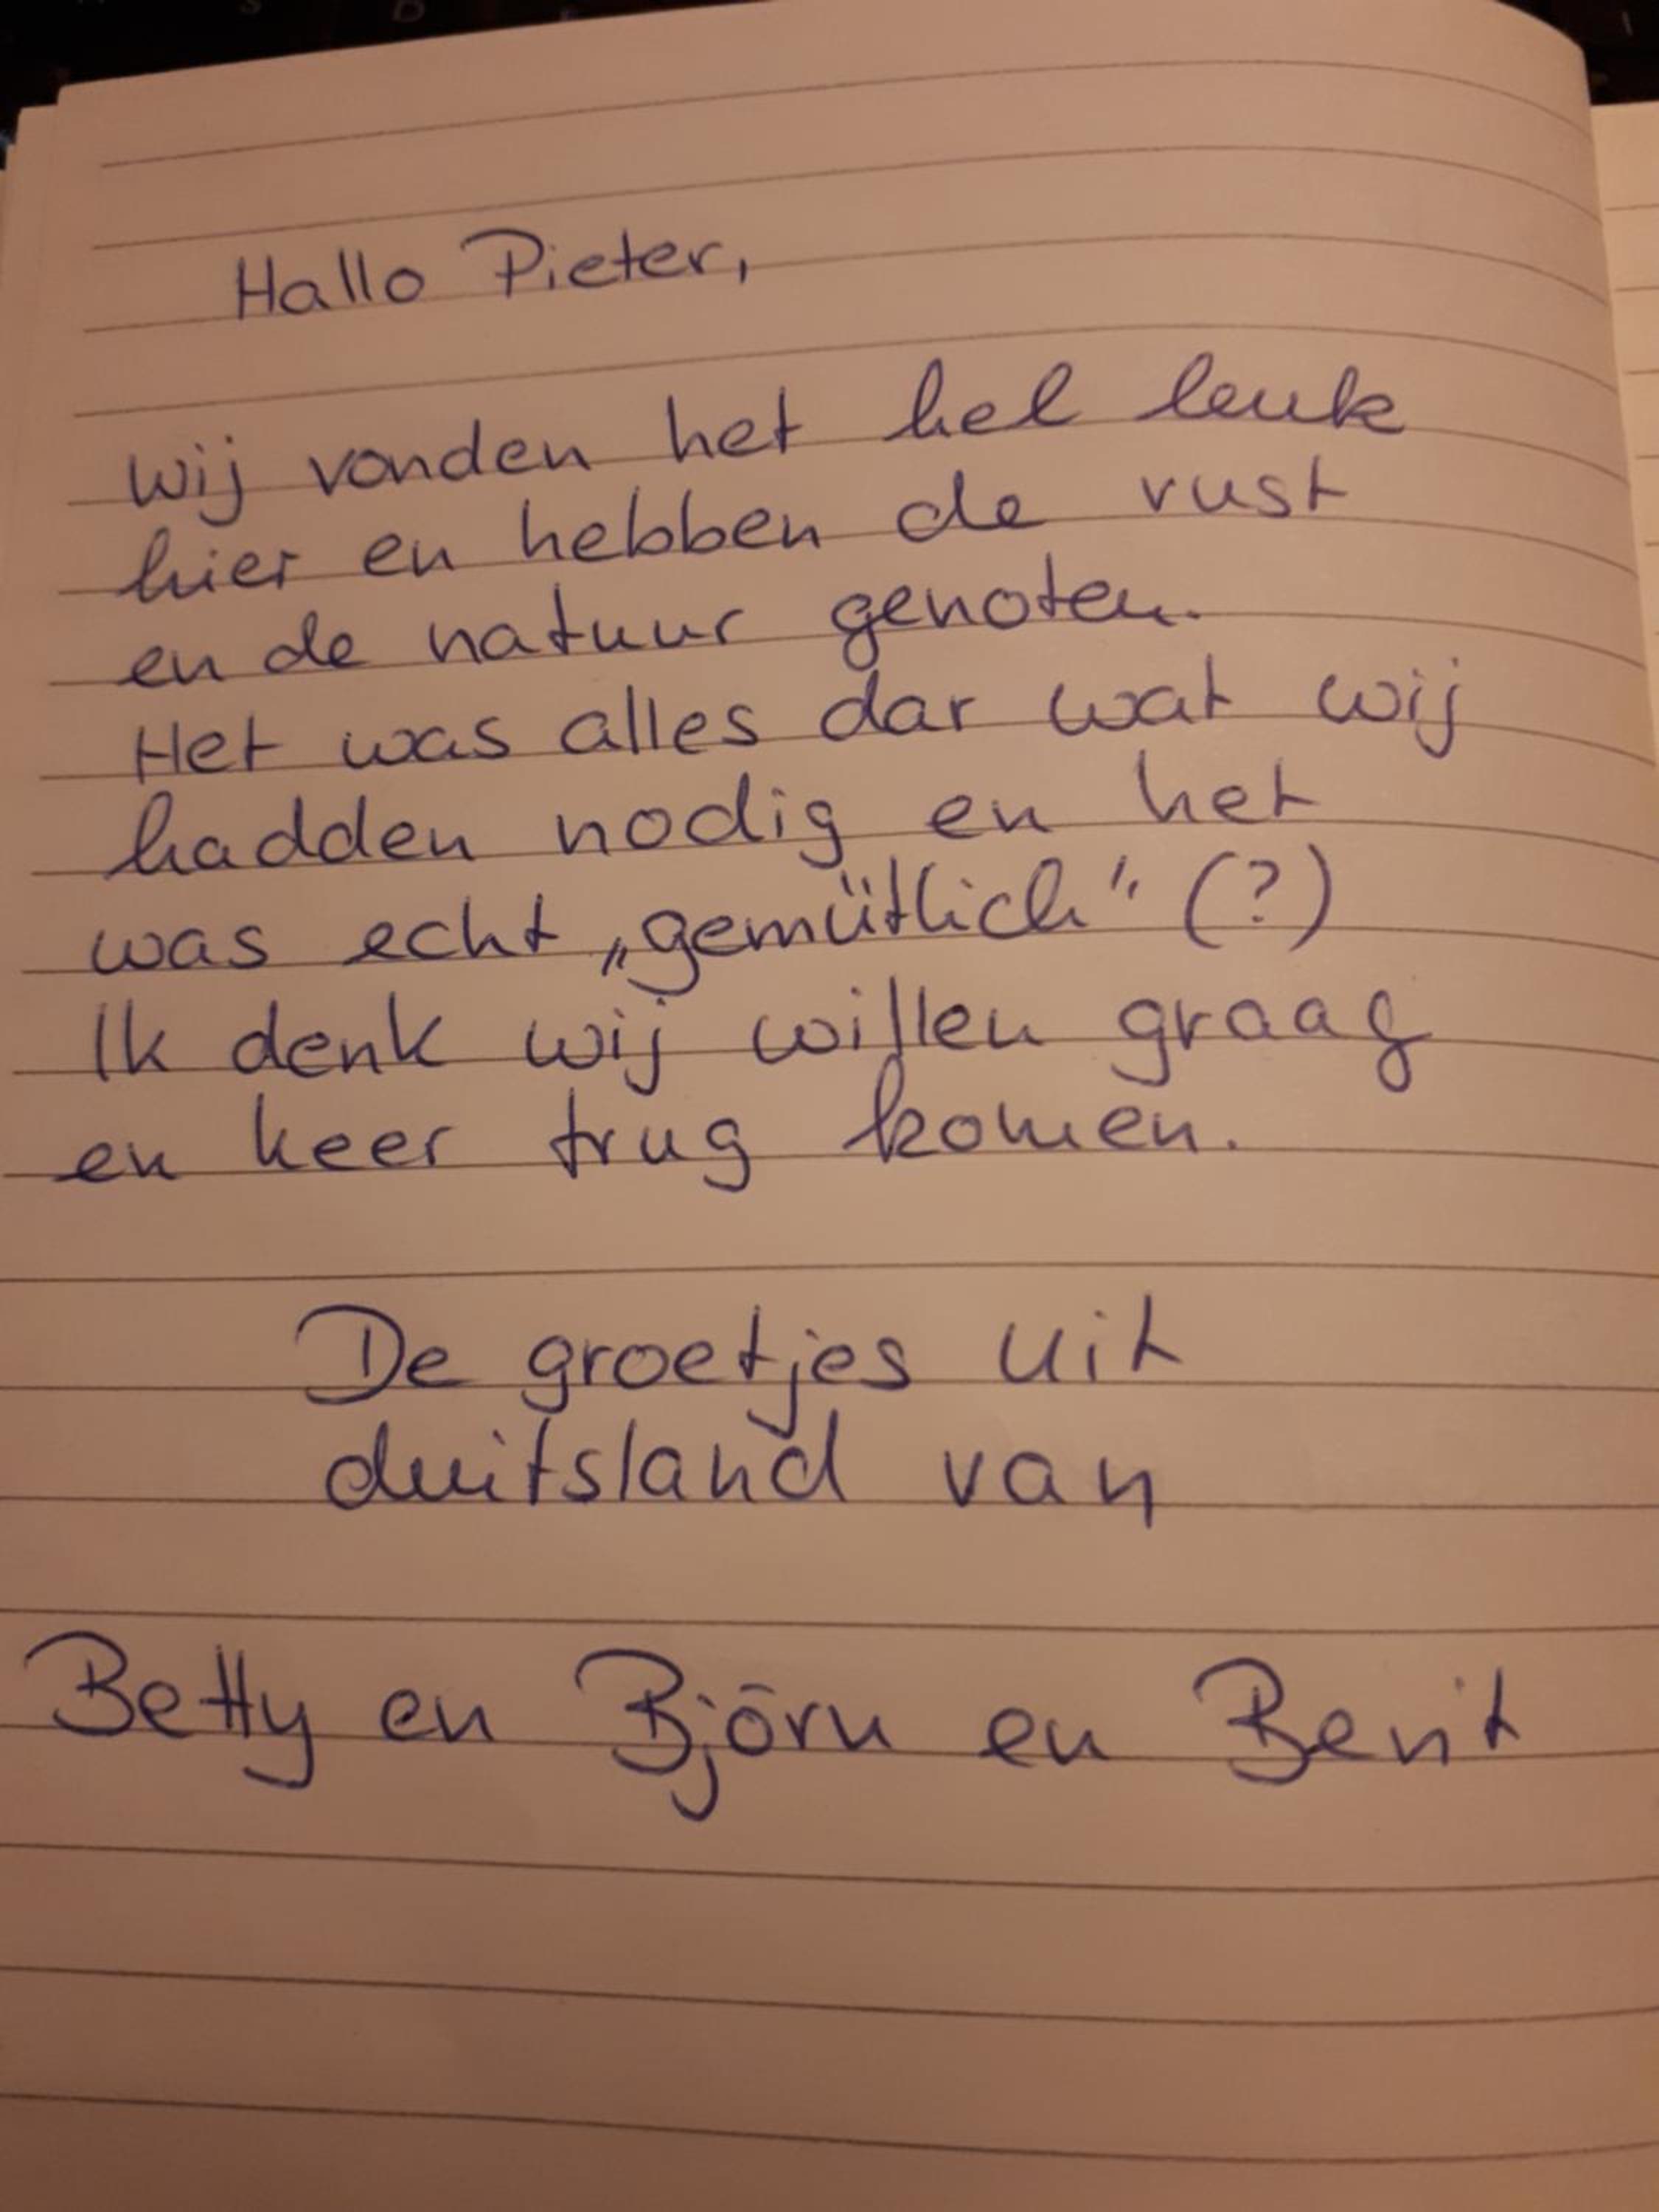 Hallo Pieter,
wij vonden het hel leuk
hier en hebben de rust
en de natuur genoten.
Het was alles dar wat wij
hadden nodig en het
was echt „gemütlich" (?)
Ik denk wij willen graag
en keer trug komen.
De groetjes uit
duitsland van
Betty en Björn en Berit